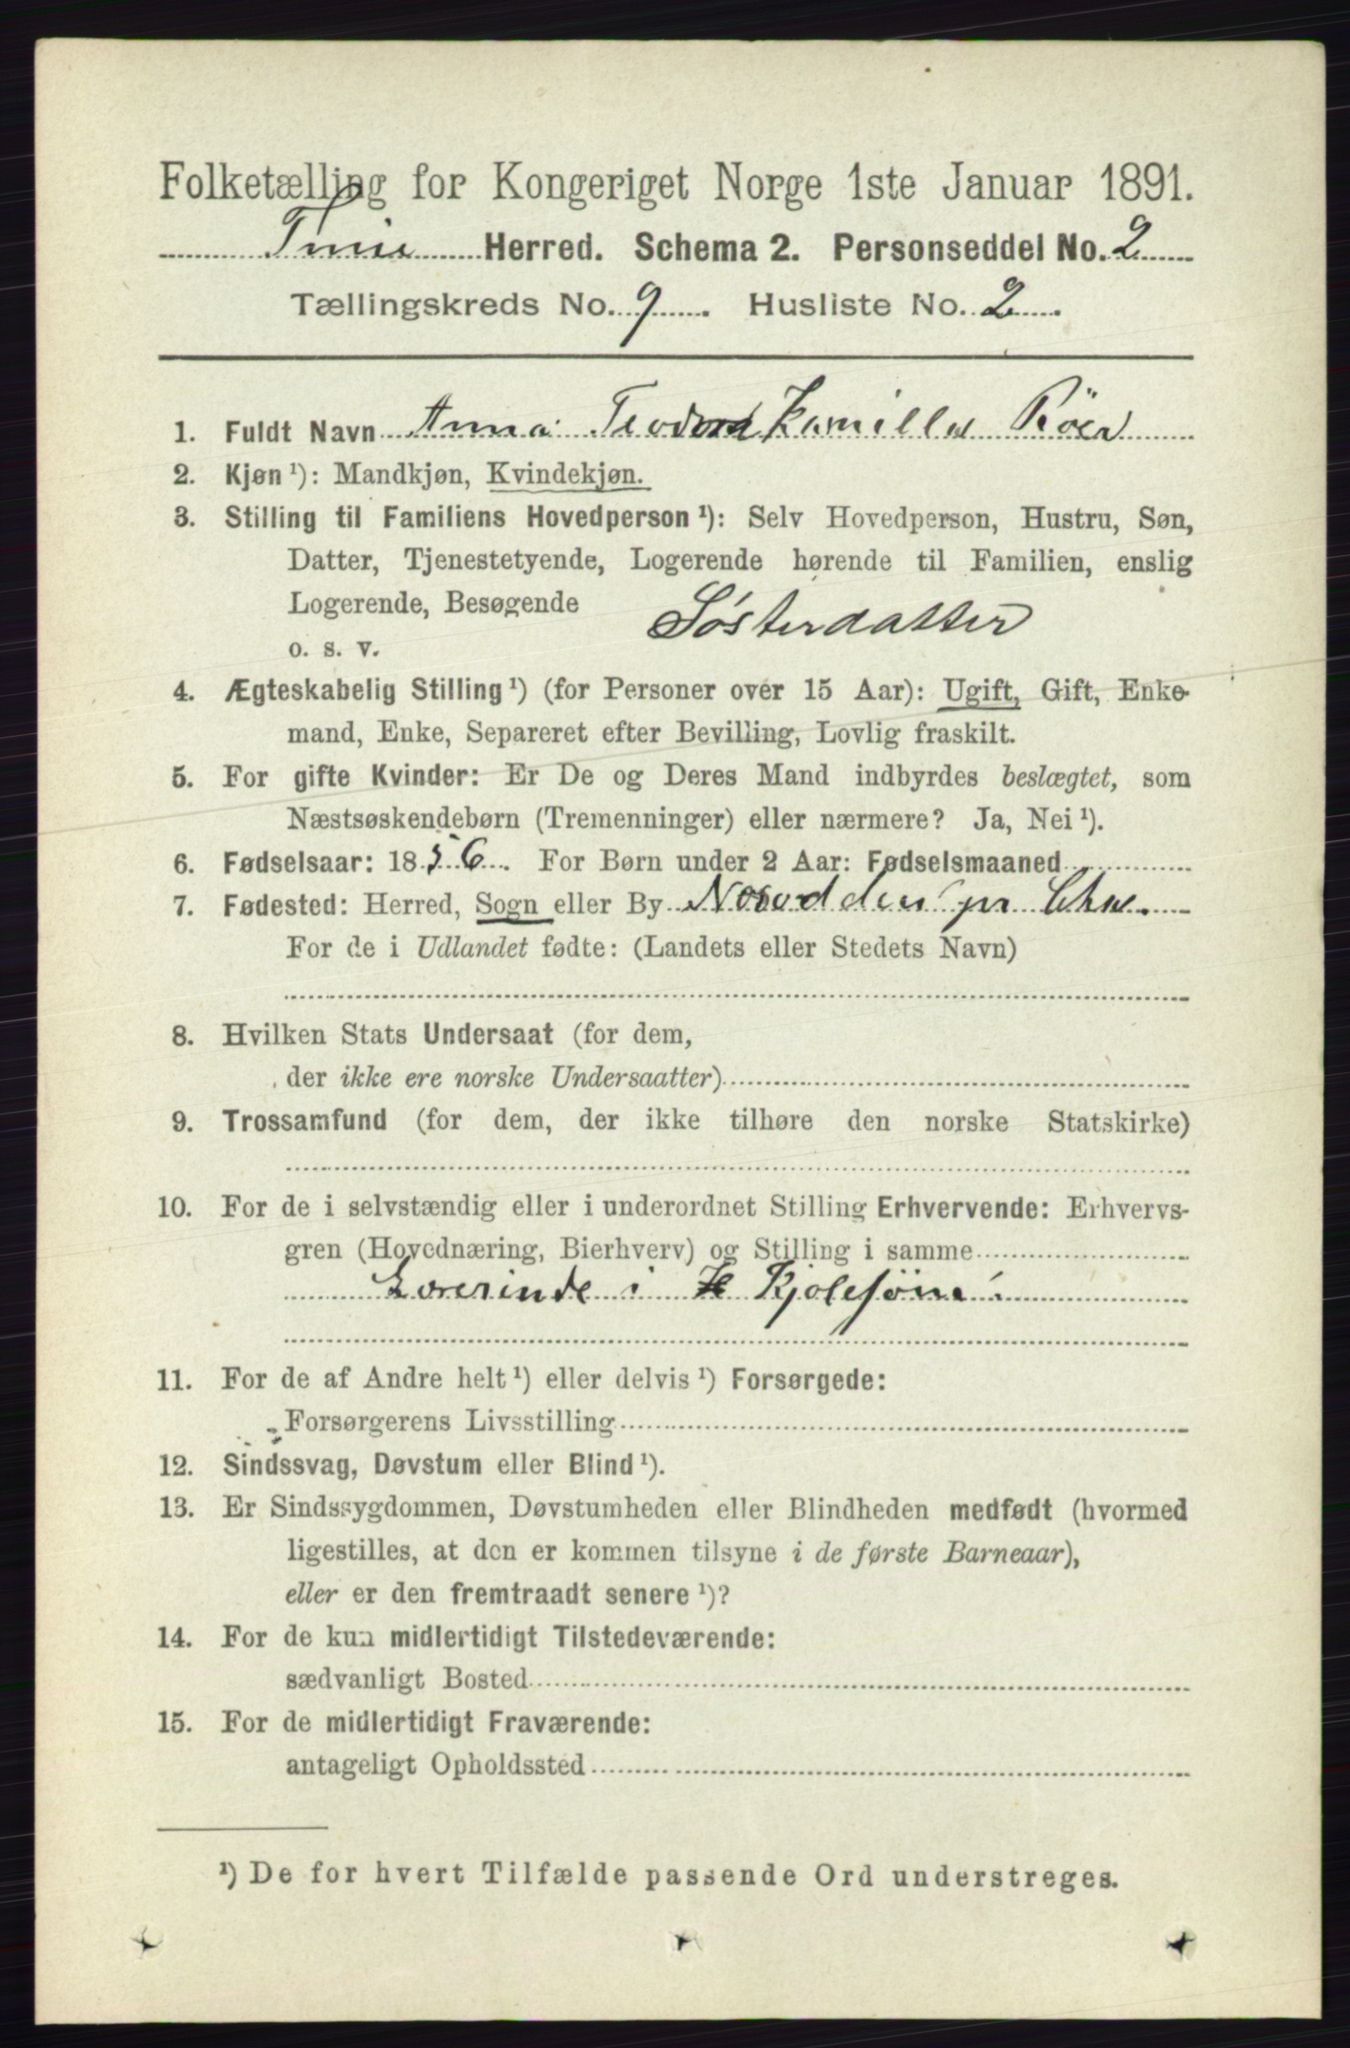 Folketælling for Kongeriget Norge 1ste Januar 1891.
Herred. Schema 2. Personseddel No. 2
Tællingskreds No. 9. Husliste No. 2.
1. Fuldt Navn Anna Teodora Kamilla Röer
2. Kjøn ¹): Mandkjøn, Kvindekjøn.
3. Stilling til Familiens Hovedperson ¹): Selv Hovedperson, Hustru, Søn,
Datter, Tjenestetyende, Logerende hørende til Familien, enslig
Logerende, Besøgende Søsterdatter
o. s. v.
4. Ægteskabelig Stilling ¹) (for Personer over 15 Aar): Ugift, Gift, Enke-
mand, Enke, Separeret efter Bevilling, Lovlig fraskilt.
5. For gifte Kvinder: Er De og Deres Mand indbyrdes beslægtet, som
Næstsøskendebørn (Tremenninger) eller nærmere? Ja, Nei ¹).
6. Fødselsaar: 1856. For Børn under 2 Aar: Fødselsmaaned
7. Fødested: Herred, Sogn eller By Nesodden pr Chra.
For de i Udlandet fødte: (Landets eller Stedets Navn)
8. Hvilken Stats Undersaat (for dem,
der ikke ere norske Undersaatter)
9. Trossamfund (for dem, der ikke tilhøre den norske Statskirke)
10. For de i selvstændig eller i underordnet Stilling Erhvervende: Erhvervs-
gren (Hovednæring, Bierhverv) og Stilling i samme
Lærerinde i Kjolesöm
11. For de af Andre helt ¹) eller delvis ¹) Forsørgede:
Forsørgerens Livsstilling
12. Sindssvag, Døvstum eller Blind ¹).
13. Er Sindssygdommen, Døvstumheden eller Blindheden medfødt (hvormed
ligestilles, at den er kommen tilsyne i de første Barneaar),
eller er den fremtraadt senere ¹)?
14. For de kun midlertidigt Tilstedeværende:
sædvanligt Bosted
15. For de midlertidigt Fraværende:
antageligt Opholdssted
¹) De for hvert Tilfælde passende Ord understreges.